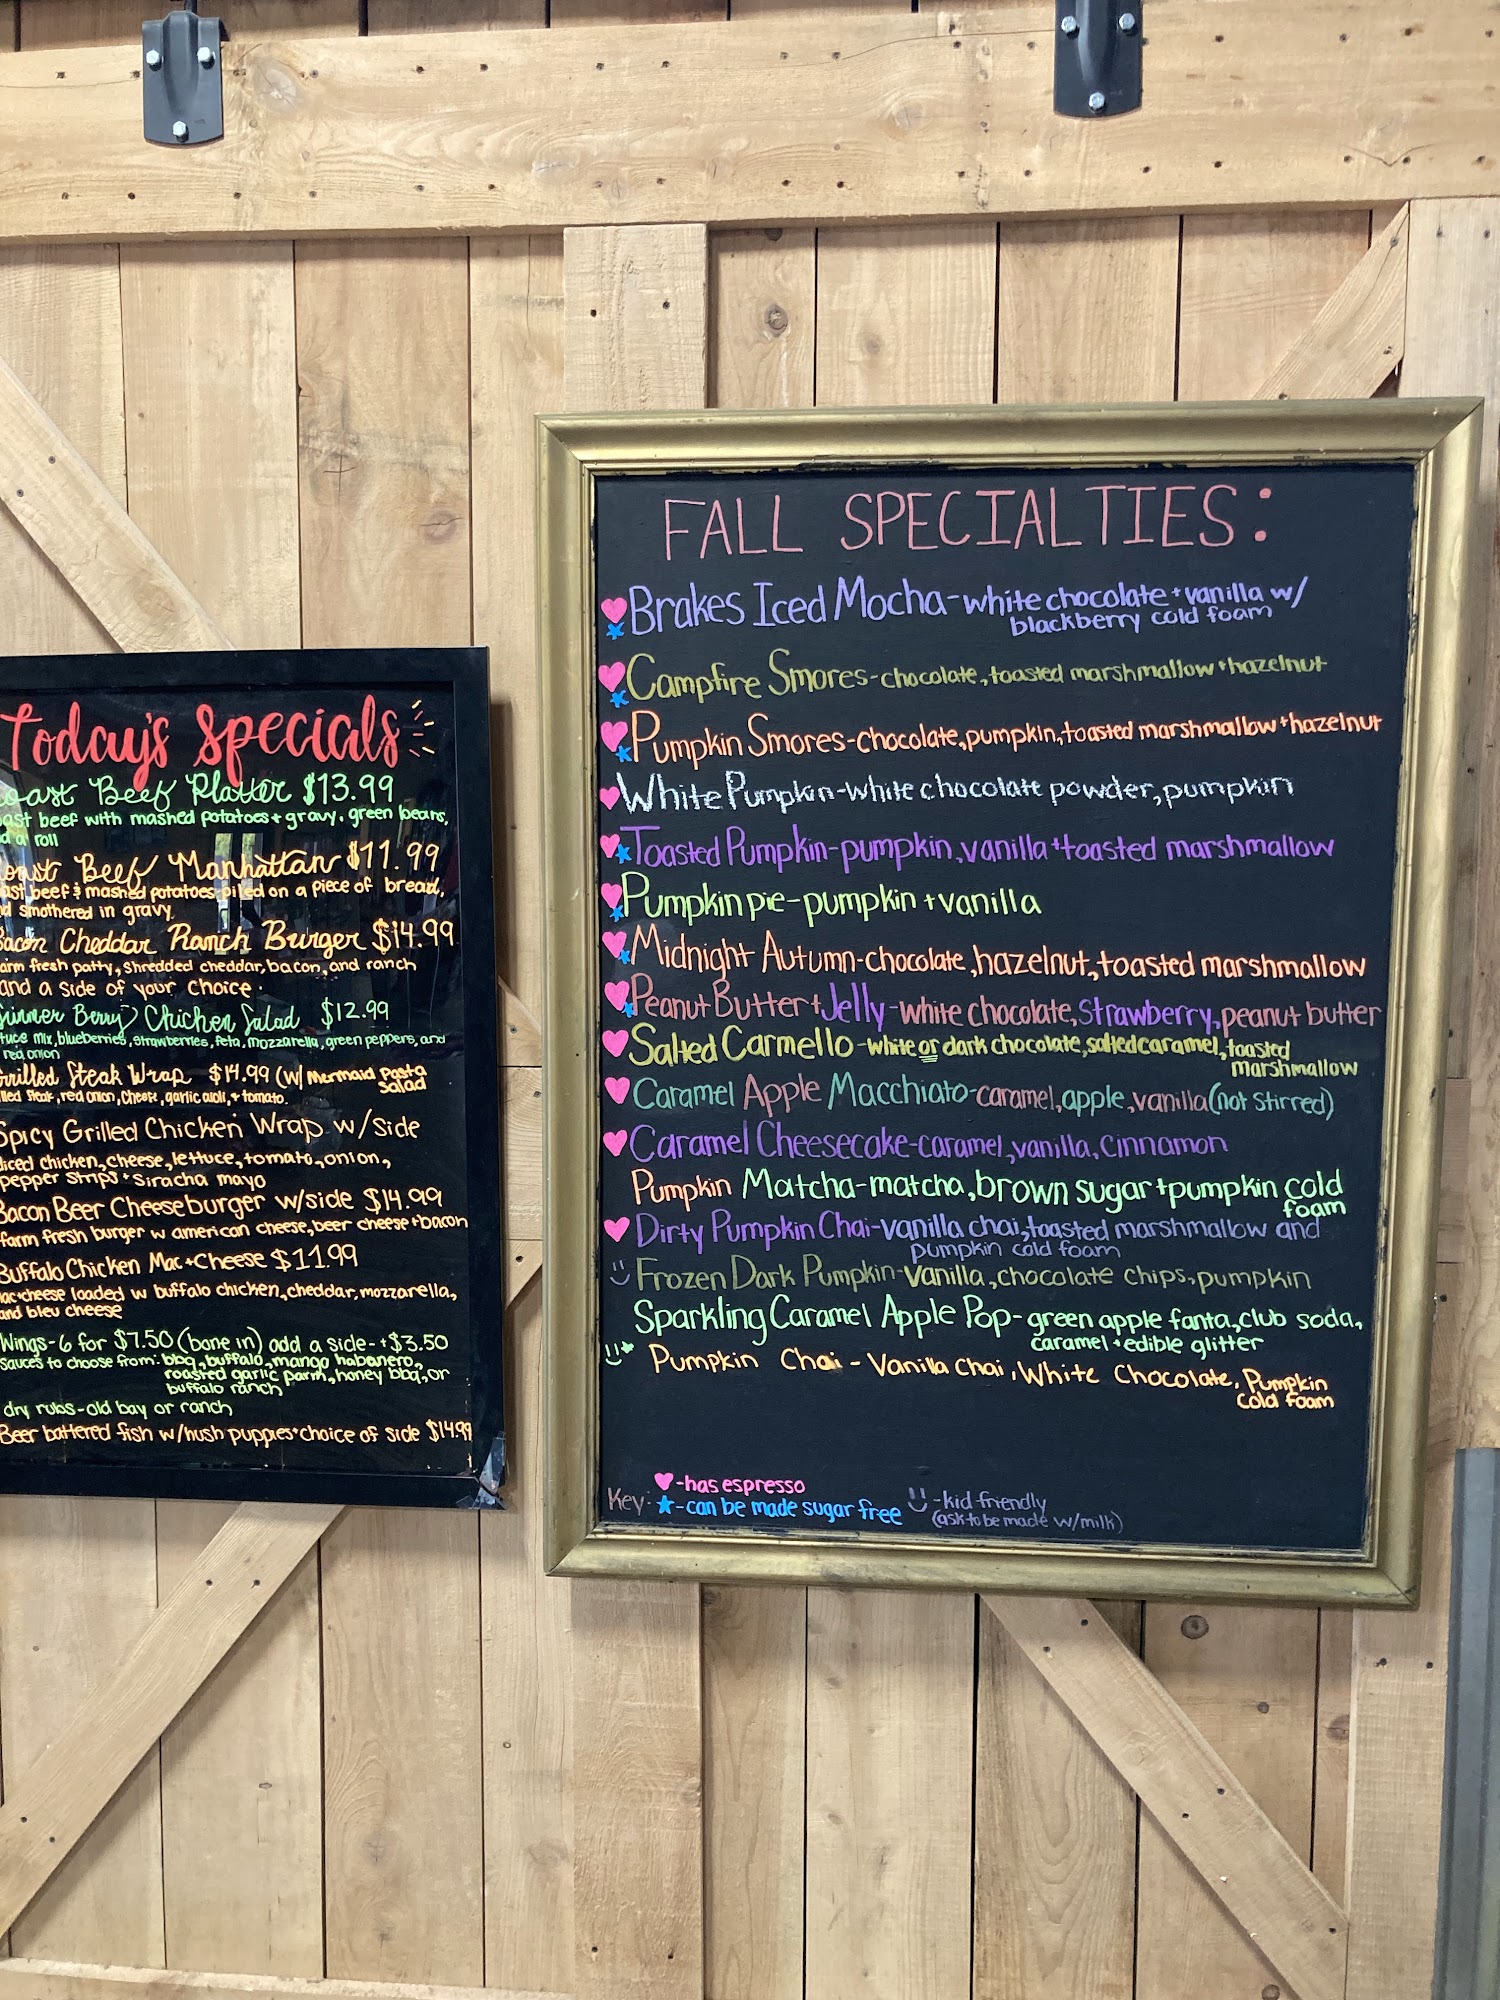 Today's Specials
Beef Platter $13.99
beef with mashed potatoes + gravy, green beans,
a roll
Beef Manhattan $11.99
beef & mashed potatoes piled on a piece of bread,
smothered in gravy.
Bacon Cheddar Ranch Burger $14.99
farm fresh patty, shredded cheddar, bacon, and ranch
and a side of your choice.
Berry Chicken Salad $12.99
mix, blueberries, strawberries, feta, mozzarella, green peppers, and
red onion
Grilled Steak Wrap $14.99 (w/ Mermaid Pasta
Salad
steak, red onion, cheese, garlic aioli, + tomato.
Spicy Grilled Chicken Wrap w/side
diced chicken, cheese, lettuce, tomato, onion,
pepper strips + siracha mayo
Bacon Beer Cheeseburger w/side $14.99
farm fresh burger w american cheese, beer cheese + bacon
Buffalo Chicken Mac + Cheese $11.99
mac + cheese loaded w buffalo chicken, cheddar, mozzarella,
and bleu cheese
Wings - 6 for $7.50 (bone in) add a side - +$3.50
Sauces to choose from: bbq, buffalo, mango habanero,
roasted garlic parm, honey bbq, or
buffalo ranch
dry rubs - old bay or ranch
Beer battered fish w/hush puppies + choice of side $14.99
FALL SPECIALTIES:
Brakes Iced Mocha - white chocolate + vanilla w/
blackberry cold foam
Campfire Smores - chocolate, toasted marshmallow + hazelnut
Pumpkin Smores - chocolate, pumpkin, toasted marshmallow + hazelnut
White Pumpkin - white chocolate powder, pumpkin
Toasted Pumpkin - pumpkin, vanilla + toasted marshmallow
Pumpkin pie - pumpkin + vanilla
Midnight Autumn - chocolate, hazelnut, toasted marshmallow
Peanut Butter + Jelly - white chocolate, strawberry, peanut butter
Salted Carmello - white or dark chocolate, salted caramel, toasted
marshmallow
Caramel Apple Macchiato - caramel, apple, vanilla (not stirred)
Caramel Cheesecake - caramel, vanilla, cinnamon
Pumpkin Matcha - matcha, brown sugar + pumpkin cold
foam
Dirty Pumpkin Chai - vanilla chai, toasted marshmallow and
pumpkin cold foam
Frozen Dark Pumpkin - vanilla, chocolate chips, pumpkin
Sparkling Caramel Apple Pop - green apple fanta, club soda,
caramel + edible glitter
Pumpkin Chai - Vanilla Chai, White Chocolate, Pumpkin
cold foam
♥ - has espresso
Key: ★ - can be made sugar free - kid friendly
(ask to be made w/milk)